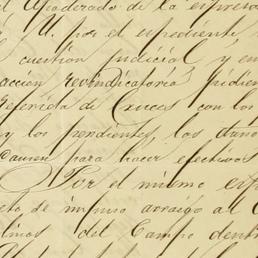 el Apoderado de la espresa
á U. por el espediente
cuestion judicial, y en
accion revindicatoria pidien
referida de Cruces con los
y los pendientes, los daños
causen para hacer efectivos
Por el mismo esp
eto de impuso arraigo al C
linos del Campo dent